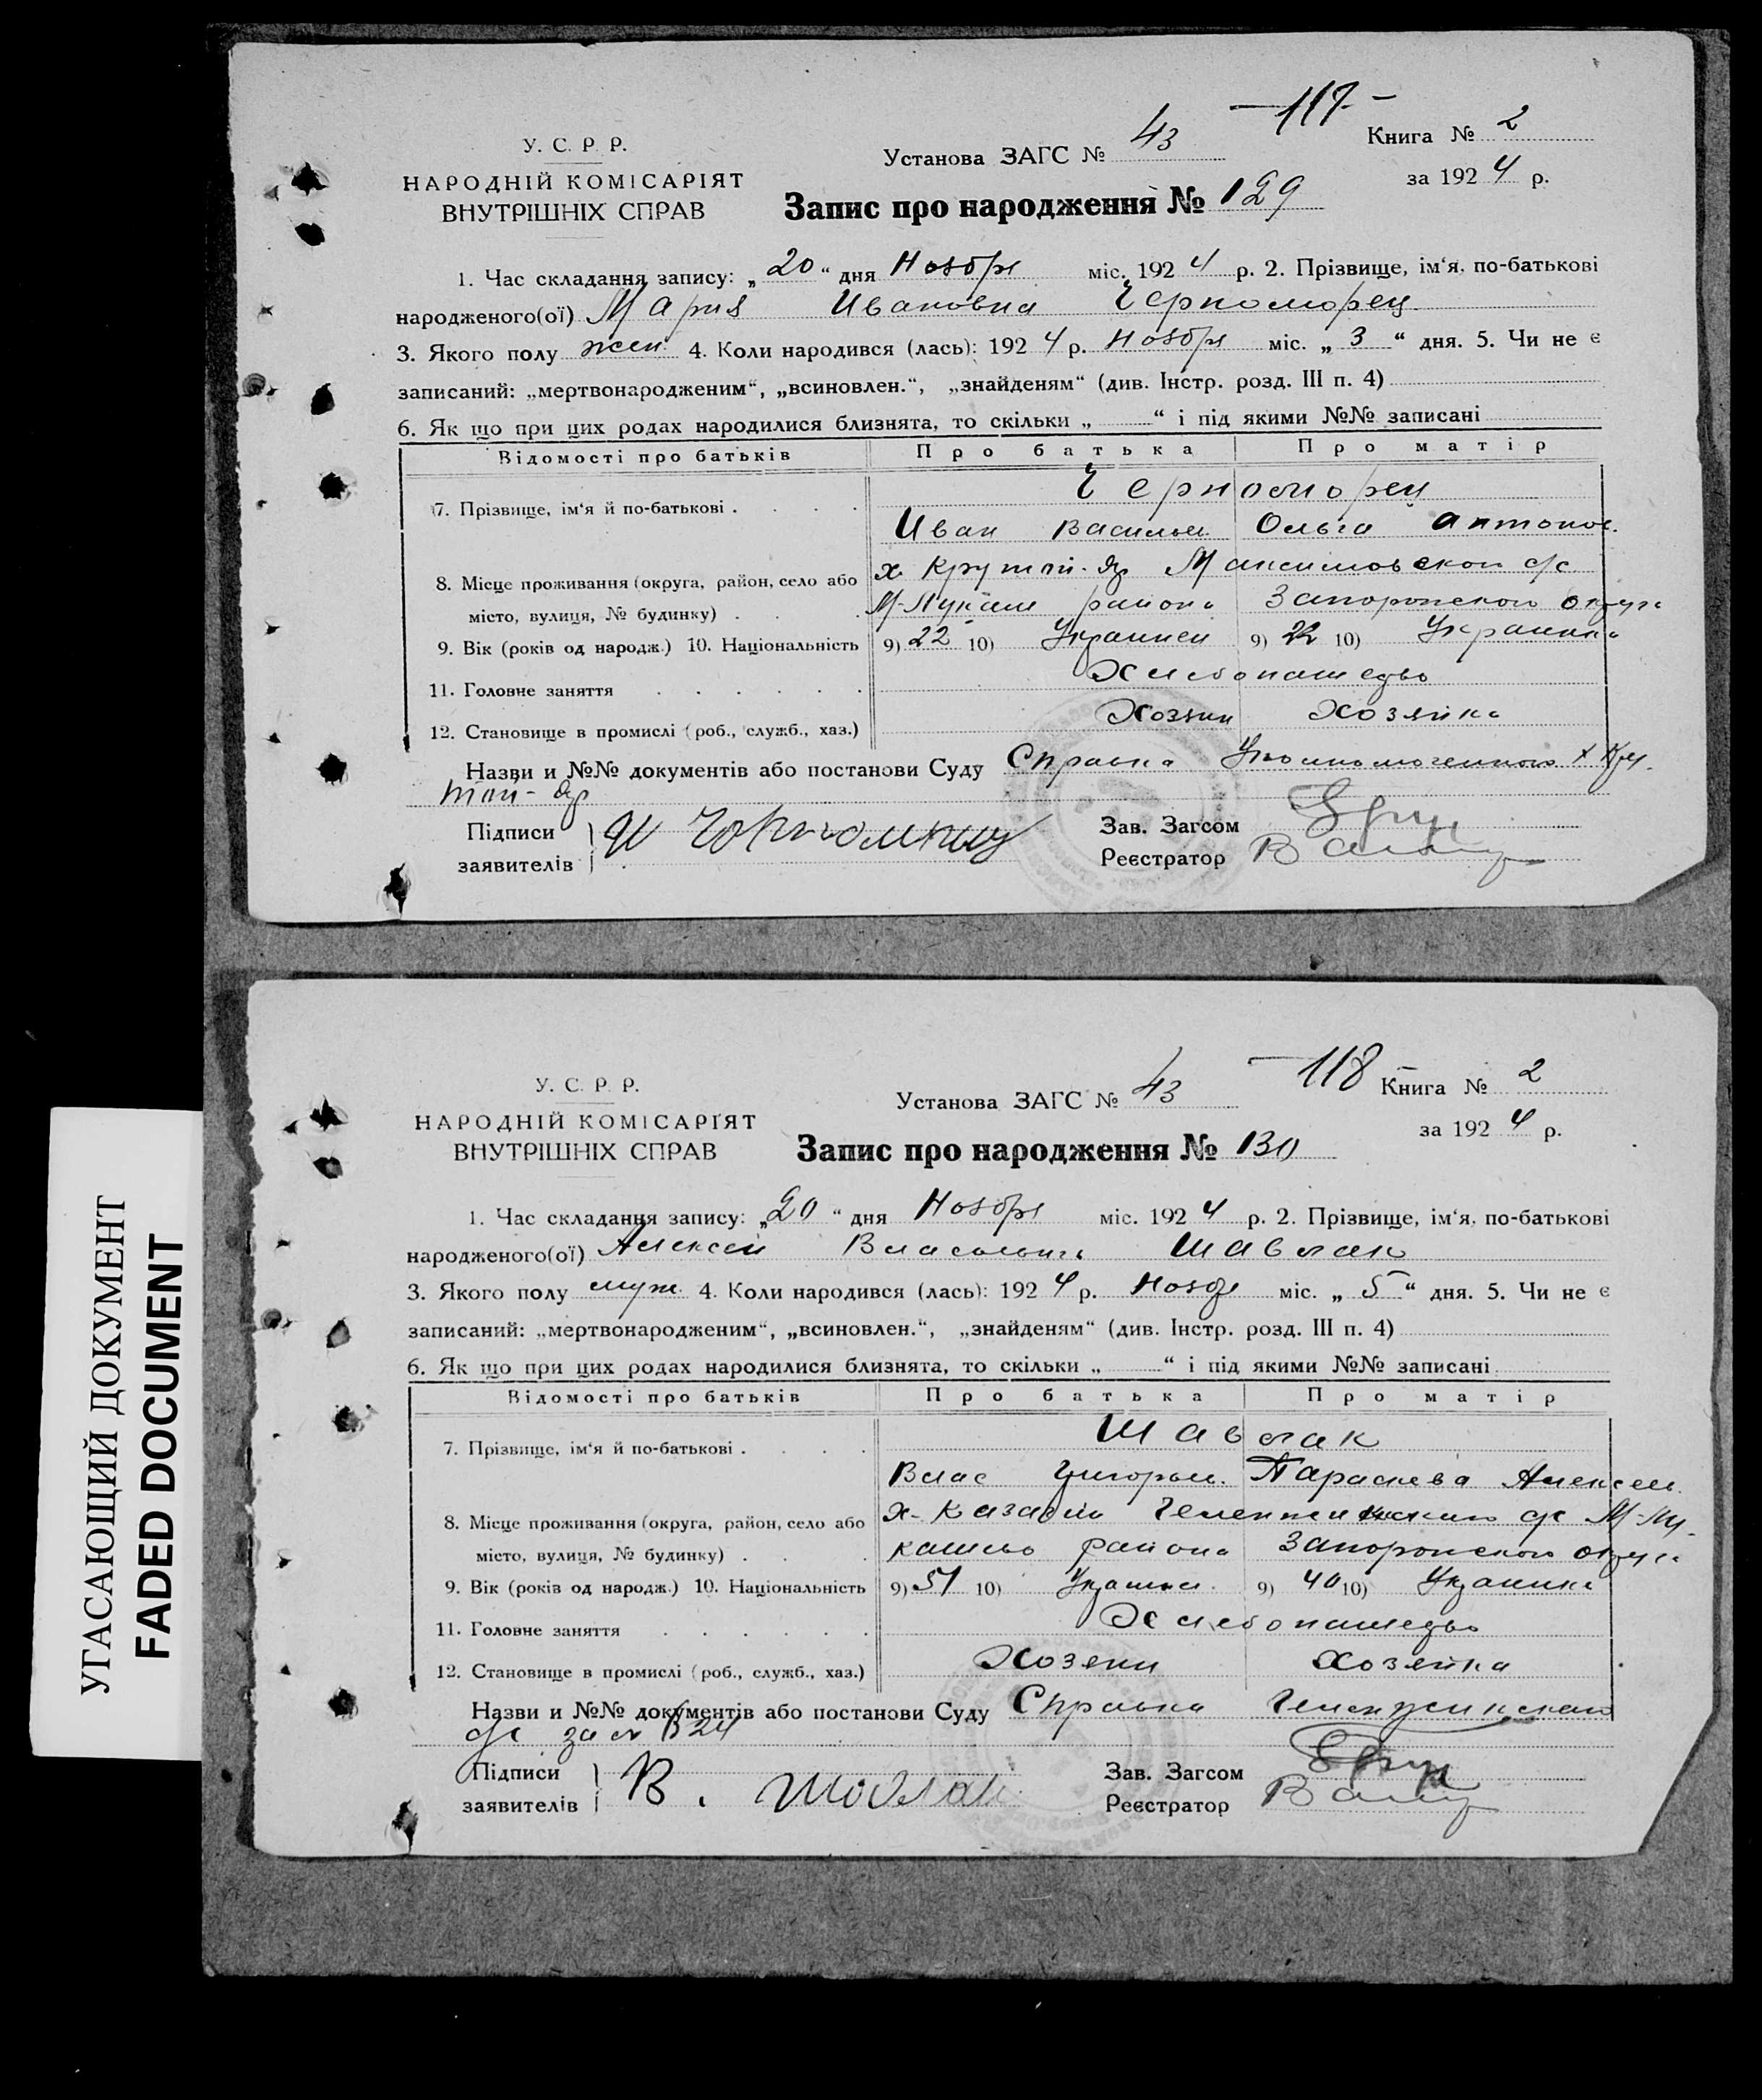 -117-
У. С. Р. Р.
НАРОДНІЙ КОМІСАРІЯТ
ВНУТРІШНІХ СПРАВ
Установа ЗАГС № 43
Книга № 2
за 1924 р.
Запис про народження № 129
1. Час складання запису: „20“ дня Ноября міс. 1924 р. 2. Прізвище, ім‘я, по-батькові
народженого(ої) Мария Ивановна Черноморец
3. Якого полу жен. 4. Коли народився (лась): 1924 р. Ноября міс. „3“ дня. 5. Чи не є
записаний: „мертвонародженим“, „всиновлен.“, „знайденям“ (див. Інстр. розд. III п. 4)
6. Як що при цих родах народилися близнята, то скільки „ “ і під якими №№ записані
Відомості про батьків Про батька Про матір
7. Прізвище, ім‘я й по-батькові . Черноморец
Иван Васильев. Ольга Антонов.
8. Місце проживання (округа, район, село або х. Крутой-Яр Максимовской с/с
місто, вулиця, № будинку) . М-Лукаш района Запорожского округа
9. Вік (років од народж.) 10. Національність 9) 22 10) Украинец 9) 22 10) Украинка
11. Головне заняття Хлебопашество
12. Становище в промислі (роб., служб., хаз.) Хозяин Хозяйка
Назви и №№ документів або постанови Суду Справка Уполномоченного х Кру
той-Яр
Підписи
заявителів
Зав. Загсом
Реєстратор
-118-
У. С. Р. Р.
НАРОДНІЙ КОМІСАРІЯТ
ВНУТРІШНІХ СПРАВ
Установа ЗАГС № 43
Книга № 2
за 1924 р.
Запис про народження № 130
1. Час складання запису: „20“ дня Ноября міс. 1924 р. 2. Прізвище, ім‘я, по-батькові
народженого(ої) Алексей Власович Шавлак
3. Якого полу муж. 4. Коли народився (лась): 1924 р. Нояб міс. „5“ дня. 5. Чи не є
записаний: „мертвонародженим“, „всиновлен.“, „знайденям“ (див. Інстр. розд. III п. 4)
6. Як що при цих родах народилися близнята, то скільки „ “ і під якими №№ записані
Відомості про батьків Про батька Про матір
7. Прізвище, ім‘я й по-батькові . Шавлак
Влас Григорьев. Параскева Алексеев.
8. Місце проживання (округа, район, село або х. с/с М-Лу-
місто, вулиця, № будинку) . кашево района Запорожского округа
9. Вік (років од народж.) 10. Національність 9) 51 10) Украинец 9) 40 10) Украинка
11. Головне заняття Хлебопашество
12. Становище в промислі (роб., служб., хаз.) Хозяин Хозяйка
Назви и №№ документів або постанови Суду Справка
с/с за № 1324
Підписи
заявителів В. Шавлак
Зав. Загсом
Реєстратор
УГАСАЮЩИЙ ДОКУМЕНТ
FADED DOCUMENT